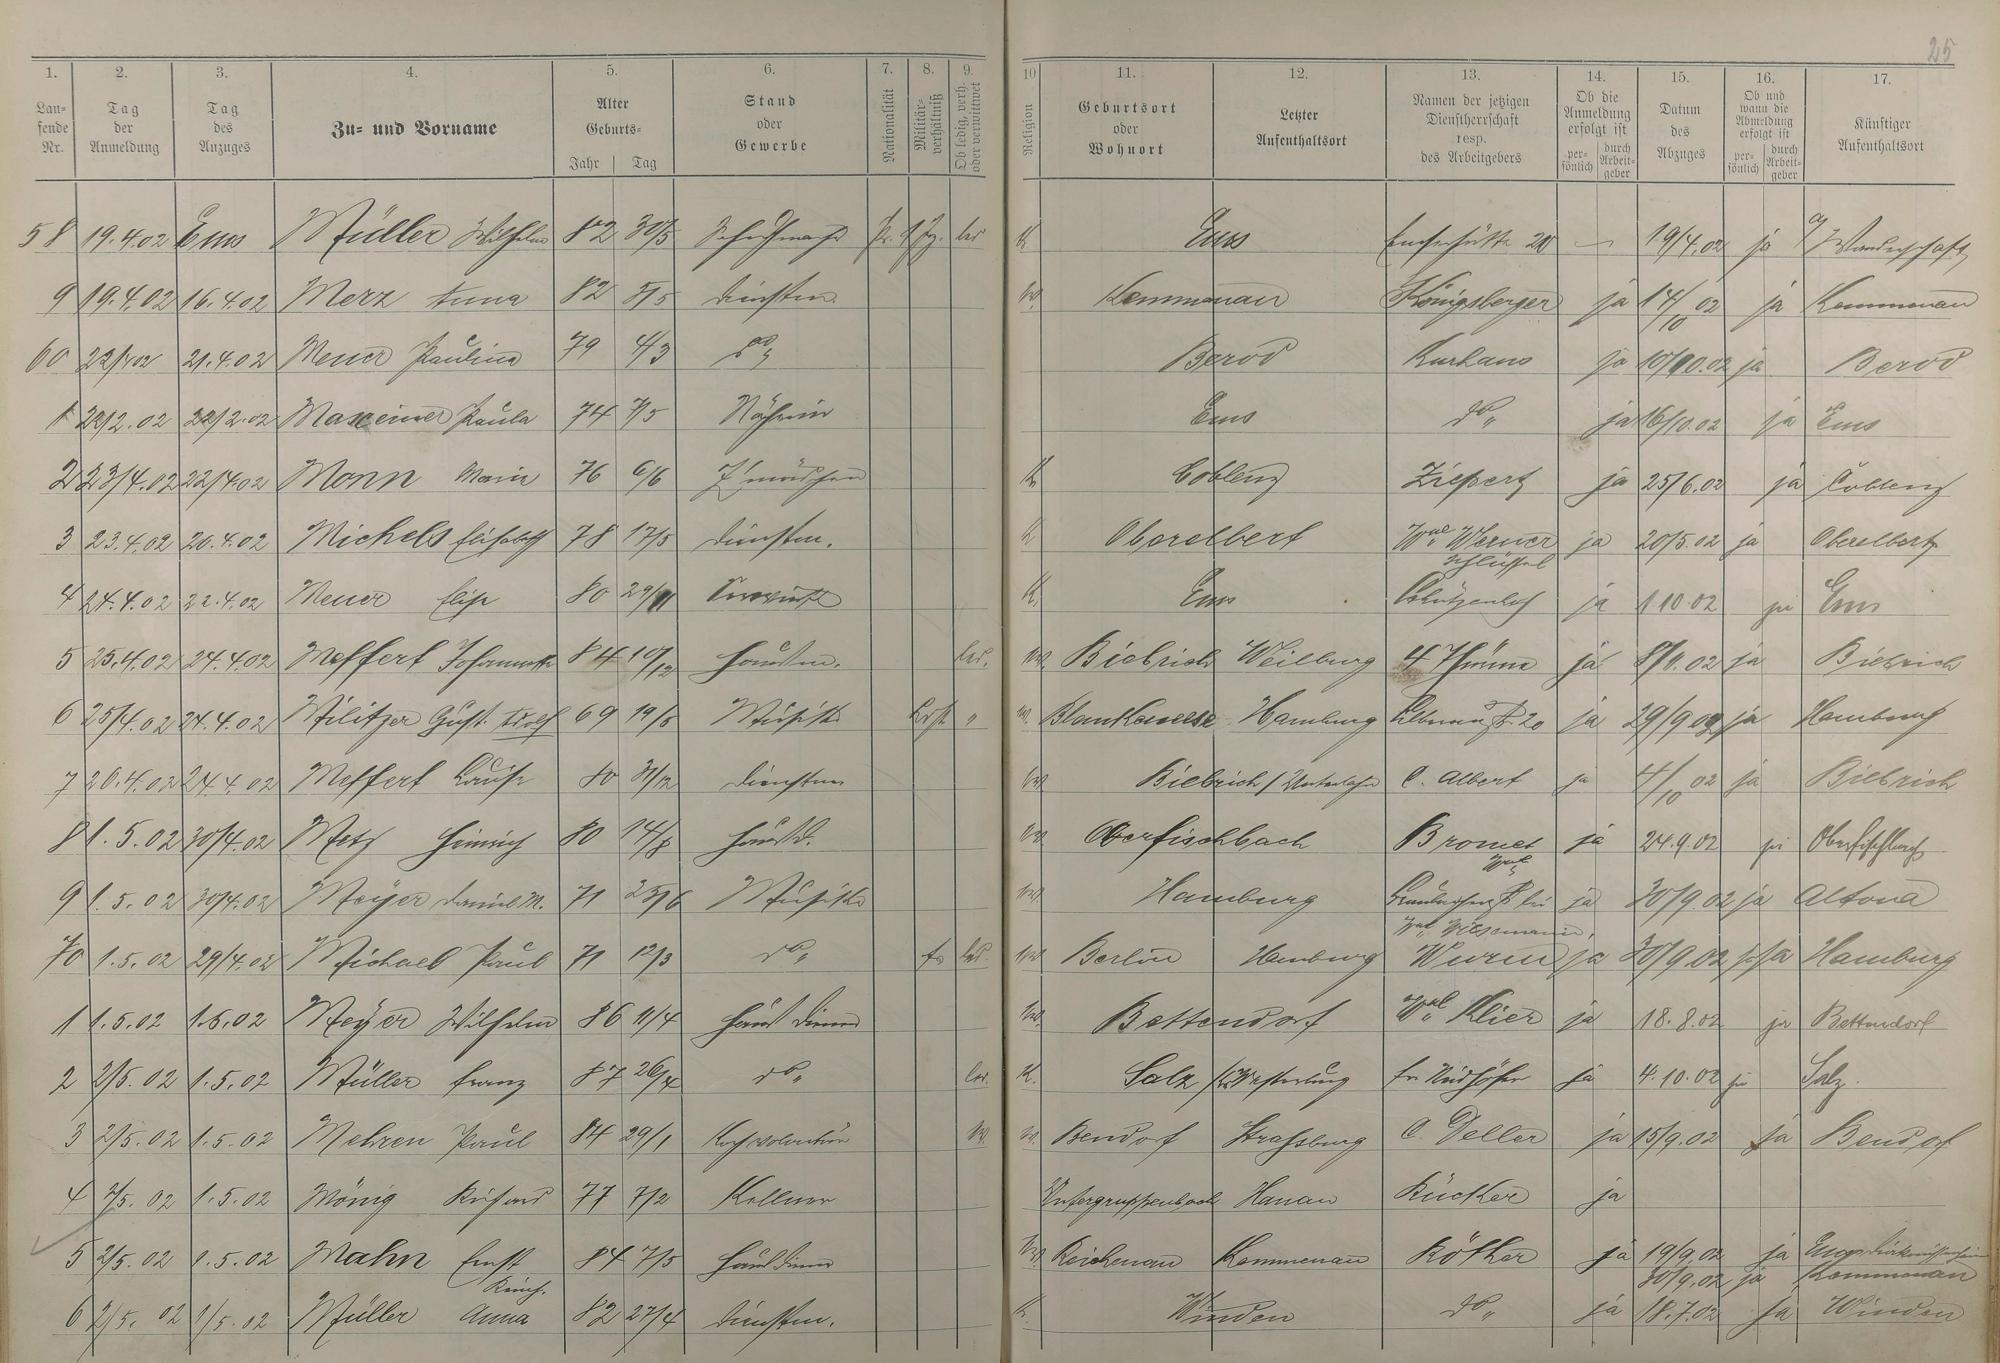 25
1. 2. 3. 4. 5. 6. 7. 8. 9. 10 11. 12. 13. 14. 15. 16. 17.
Lau-
fende
Nr.
Tag
der
Anmeldung
Tag
des
Anzuges
Zu- und Vorname
Alter
Geburts-
Jahr Tag
Stand
oder
Gewerbe
Nationalität
Militär-
verhältniß
Ob ledig, verh.
oder verwittwet
Religion
Geburtsort
oder
Wohnort
Letzter
Aufenthaltsort
Namen der jetzigen
Dienstherrschaft
resp.
des Arbeitgebers
Ob die
Anmeldung
erfolgt ist
per-
sönlich
durch
Arbeit-
geber
Datum
des
Abzuges
Ob und
wann die
Abmeldung
erfolgt ist
per-
sönlich
durch
Arbeit-
geber
Künftiger
Aufenthaltsort
58 19.4.02 Ems Müller Wilhelm 82 30/5 Pr. led K Ems Emserhütte 20 — 19/4.02 ja Wanderschaft
9 19.4.02 16.4.02 Merz Anna 82 5/5 Dienstm. ev. Kemmenau Königsberger ja 14/10 02 ja Kemmenau
60 22/4 02 21.4.02 Meuer Pauline 79 4/3 do Berod Kurhaus ja 10/10.02 ja Berod
1 22/2.02 22/2.02 Maxeiner Paula 74 7/5 Näherin Ems do ja 16/10.02 ja Ems
2 23/4.02 22/4.02 Mann Maria 76 6/6 Z mädchen K Coblenz Ziepert ja 25/6.02 ja Coblenz
3 23.4.02 20.4.02 Michels Elisabeth 78 17/5 Dienstm. K Oberelbert Wwe Werner ja 20/5.02 ja Oberelbert
Schlüssel
4 24.4.02 22.4.02 Meuer Elise 80 29/11 K. Ems Schützenhof ja 1.10.02 ja Ems
5 25.4.02 24.4.02 Meffert Johannette 84 10/12 Hausm. led. ev. Biebrich Weilburg Thümm ja 8/11.02 ja Biebrich
6 25/4.02 24.4.02 Militzer Gust. Adolf 69 19/5 Musiker " ev. Blankenese Hamburg 20 ja 29/9 02 ja Hamburg
7 26.4.02 24.4.02 Meffert Louise 80 31/12 Dienstm ev. Biebrich / Unterlahn C. Albert ja 4/10 02 ja Biebrich
8 1.5.02 30/4.02 Metz Heinrich 80 14/8 Hausd. ev. Oberfischbach Bromet ja 24.9.02 ja Oberfischbach
9 1.5.02 30/4.02 Meyer Daniel M. 71 25/6 Musiker ev. Hamburg ja 30/9.02 ja Altona
Wwe Wiesemann
70 1.5.02 29/4.02 Michael Paul 71 12/3 do led. ev. Berlin Hamburg Wurm ja 30/9.02 ja Hamburg
1 1.5.02 1.5.02 Meyer Wilhelm 86 11/4 Hausdiener ev. Bettendorf Wwe Klier ja 18.8.02 ja Bettendorf
2 2/5.02 1.5.02 Müller Franz 87 26/4 do led. K. Salz Westerburg Fr. Neidhöfer ja 4.10.02 ja Salz
3 2/5.02 1.5.02 Mehren Paul 84 29/1 Kochvolontär ev. Bendorf Strassburg C. Deller ja 15/9.02 ja Bendorf
4 2/5.02 1.5.02 Mönig Richard 77 7/2 Kellner Untergruppenbach Hanau Rücker ja
5 2/5.02 1.5.02 Mahn Ernst 84 7/5 Hausdiener ev. Reichenau Kemmenau Röther ja 19/9.02 ja Ems
Reinh. 30/9.02 ja Kemmenau
6 2/5.02 1/5.02 Müller Anna 82 27/4 Dienstm. K. Winden do ja 18.7.02 ja Winden